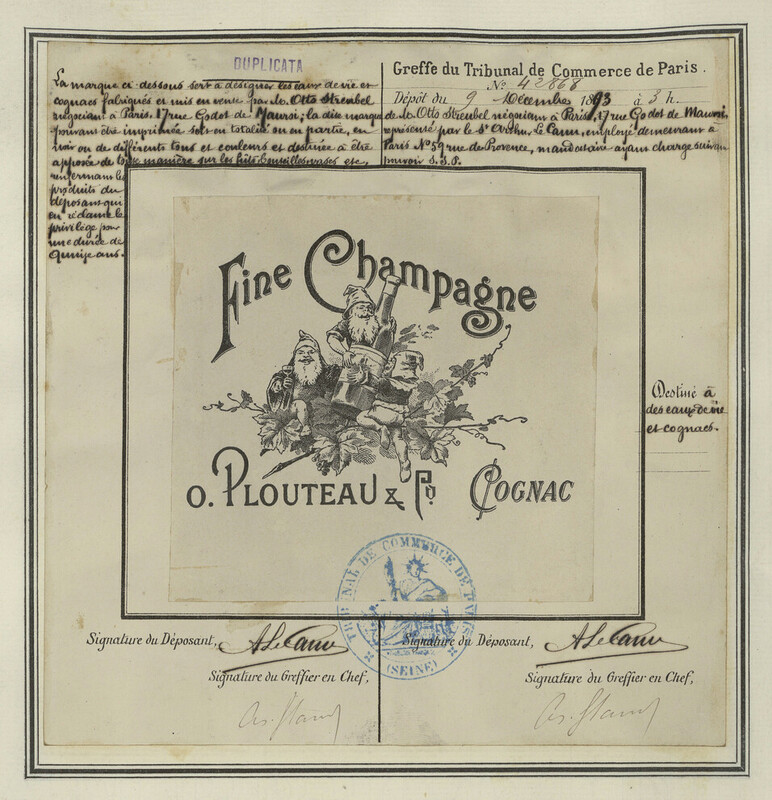 DUPLICATA
La marque ci-dessous sert à désigner les eaux de vie et
cognacs fabriqués et mis en vente par M. Otto Streubel
négociant à Paris, 17 rue Godot de Mauroi; la dite marque
pouvant être imprimée soit en totalité ou en partie, en
noir ou de différents tons et couleurs et destinée à être
apposée de toute manière sur les fûts bouteilles vases etc.
renfermant les
produits du
déposant qui
en réclame le
privilège pour
une durée de
Quinze ans.
Greffe du Tribunal de Commerce de Paris.
N° 42868
Dépôt du 9 Décembre 1893 à 3 h.
de M. Otto Streubel négociant à Paris, 17 rue Godot de Mauroi,
représenté par le Sr Arthur Le Cann, employé demeurant à
Paris N° 59 rue de Provence, mandataire ayant charge suivant
pouvoir S.S.P.
Fine Champagne
O. PLOUTEAU & Co COGNAC
Destiné à
des eaux de vie
et cognacs.
TRIBUNAL DE COMMERCE DE PARIS
(SEINE)
Signature du Déposant, A Le Cann
Signature du Greffier en Chef,
Signature du Déposant, A Le Cann
Signature du Greffier en Chef,